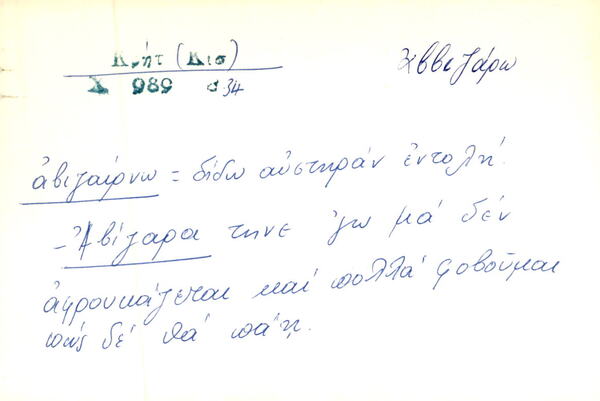 Κρήτ (Κισ)
Χ 989 σ 34
ἀββιζάρω
ἀβιζαίρνω = δίδω αὐστηράν ἐντολή.
- Ἀβίζαρα τηνε 'γω μά δέν
ἀφρουκάζεται καί πολλά φοβοῦμαι
πώς δέ θά πάῃ.